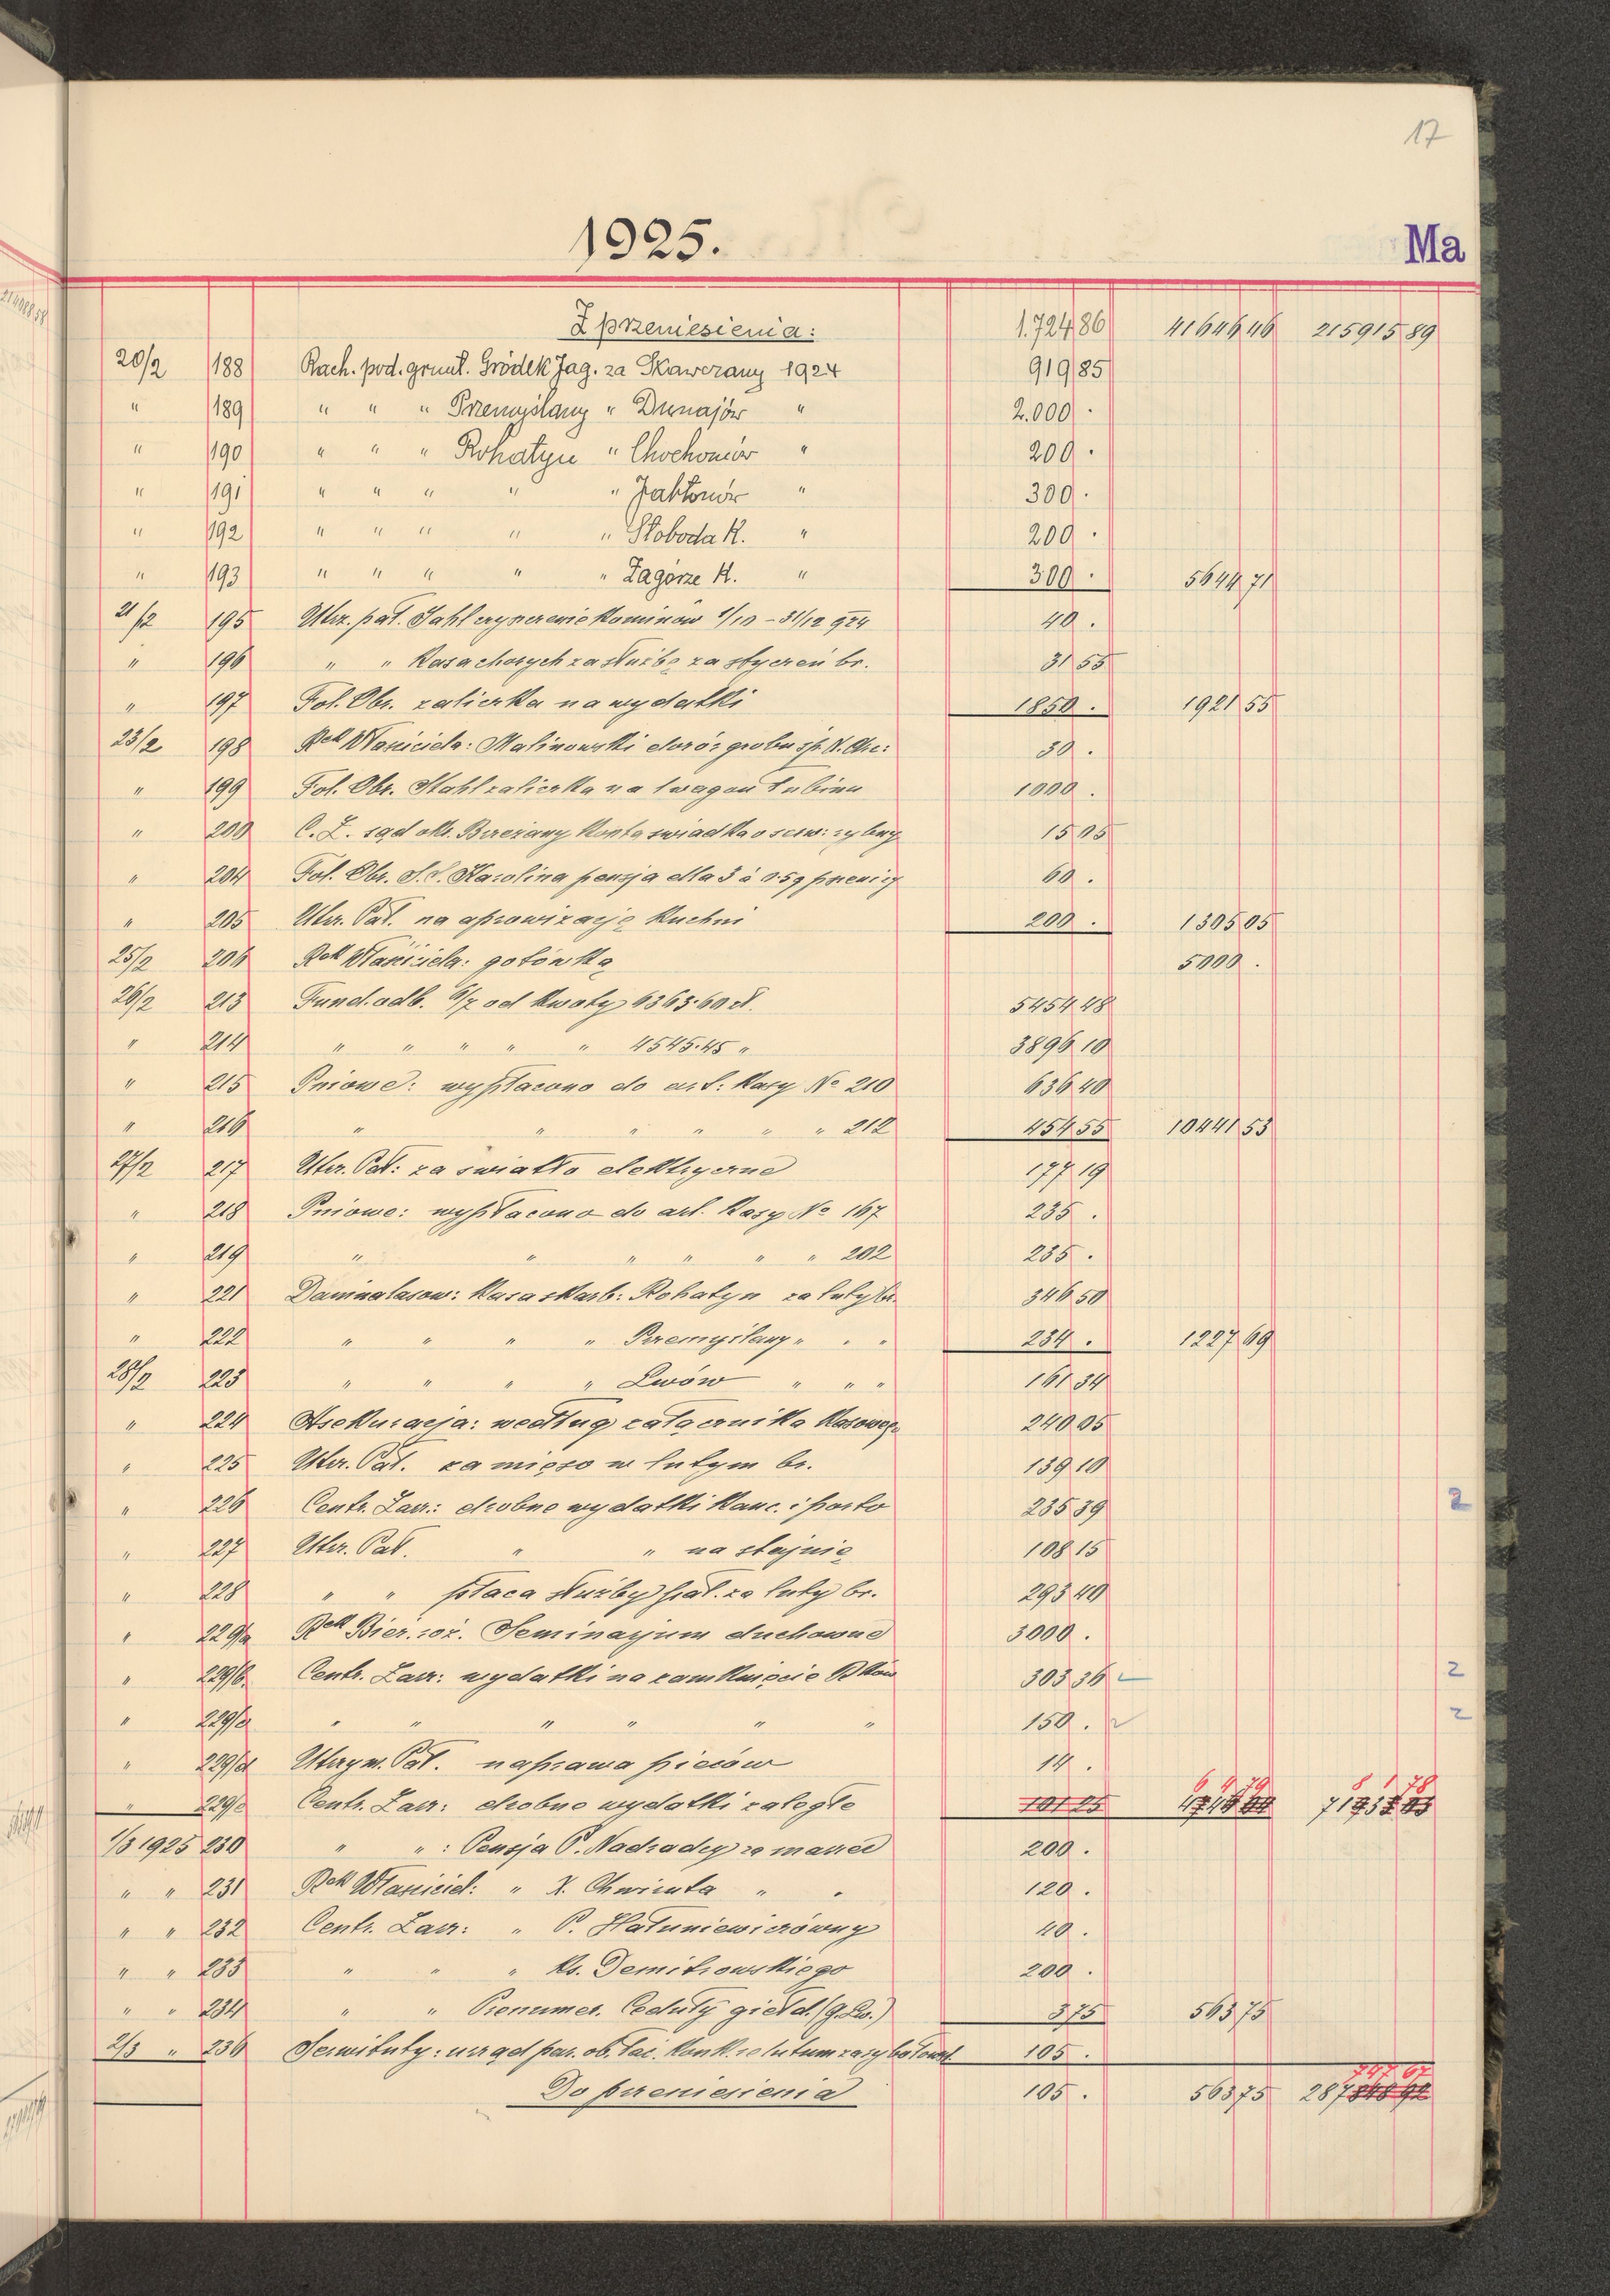 17
1925.
Ma
Z przeniesienia: 1.724 86 41646 46 215915 89
20/2 188 Rach. pod. grunt. Gródek Jag. za Skawerany 1924 919 85
" 189 " " " Przemyślany " Dunajów " 2.000 .
" 190 " " " Rohatyn " Chochoniów " 200 .
" 191 " " " " " Jabłonów " 300 .
" 192 " " " " " Słoboda K. " 200 .
" 193 " " " " " Zagórze K. " 300 . 5644 71
21/2 195 Utrz. pał. Jahl czyszczenie kominów 1/10 – 31/12 924 40 .
" 196 " " Kasa chorych za służbę za styczeń br. 31 55
" 197 Fol. Obr. zaliczka na wydatki 1850 . 1921 55
23/2 198 Rek Właściciela: Malinowski dozór grobu śp. 30 .
" 199 Fol. Obr. Stahl zaliczka na 1 wagon łubinu 1000 .
" 200 C. Z. sąd okr. Brzeżany koszta świadka 15 05
" 204 Fol. Obr. S.S. Karolina pensja dla 3 à 0.59 pszenicy 60 .
" 205 Utrz. Pał. na aprowizację kuchni 200 . 1305 05
25/2 206 Rek Właściciela: gotówką 5000 .
26/2 213 Fund. odb. 6/7 od kwoty 6363.60 zł. 5454 48
" 214 " " " " " 4545.45 " 3896 10
" 215 Pniowe: wypłacono do art: kasy No 210 636 40
" 216 " " " " " " 212 454 55 10441 53
27/2 217 Utrz. Pał: za światło elektryczne 177 19
" 218 Pniowe: wypłacono do art. kasy No 167 235 .
" 219 " " " " " " 202 235 .
" 221 Danina lasow: kasa skarb: Rohatyn za luty br. 346 50
" 222 " " " " Przemyślany " " " 234 . 1227 69
28/2 223 " " " " Lwów " " " 161 34
" 224 Asekuracja: według załącznika kasowego 240 05
" 225 Utrz. Pał. za mięso w lutym br. 139 10
" 226 Centr. Zarz.: drobne wydatki kanc. i porto 235 39 2
" 227 Utrz. Pał. " " na stajnię 108 15
" 228 " " płaca służby pał. za luty br. 293 40
" 229/a Rek Bież. roż. Seminarjum duchowne 3000 .
" 229/b. Centr. Zarz: wydatki na zamknięcie Rków 303 36 2
" 229/c " " " " " " 150 . 2
" 229/d Utrzym. Pał. naprawa pieców 14 .
6 4 79 8 1 78
" 229/e Centr. Zarz: drobne wydatki zaległe 101 25
1/3 1925 230 " " : Pensja P. Nadrady za marzec 200 .
" " 231 Rek Właściciel: " X. Chwiruta " " 120 .
" " 232 Centr. Zarz: " P. Hałuniewiczówny 40 .
" " 233 " " " Ks. Demitrowskiego 200 .
" " 234 " " Prenumer. Ceduły giełd. (g. Lw.) 3 75 563 75
2/3 " 236 Serwituty: urząd par. ob. łac. 105 .
747 67
Do przeniesienia 105 . 563 75 287848 92